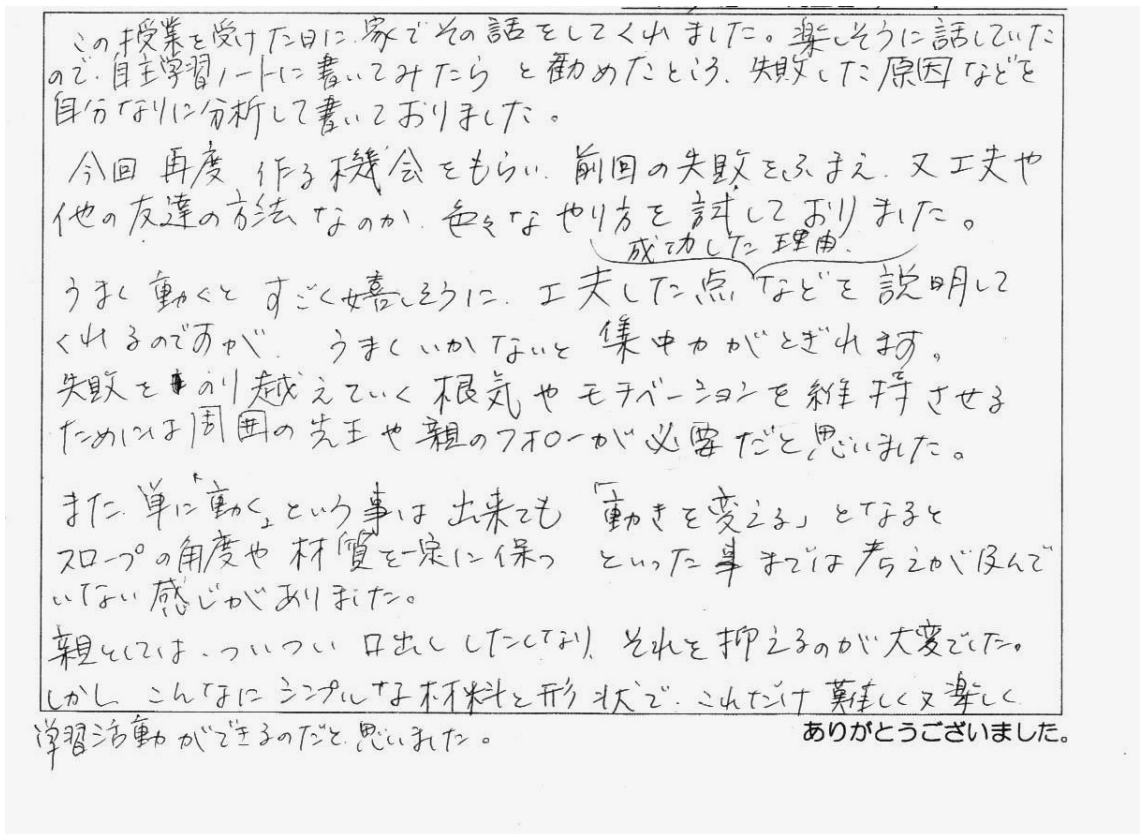 この授業を受けた日に、家でその話をしてくれました。楽しそうに話していた
ので、自主学習ノートに書いてみたら と勧めたところ、失敗した原因などを
自分なりに分析して書いておりました。
今回 再度 作る機会をもらい、前回の失敗をふまえ、又工夫や
他の友達の方法なのか、色々なやり方を試しておりました。
成功した理由、
うまく動くと すごく嬉しそうに、工夫した点などを説明して
くれるのですが、うまくいかないと 集中力がとぎれます。
失敗をのり越えていく根気やモチベーションを維持させる
ためには周囲の先生や親のフォローが必要だと思いました。
また、単に「動く」という事は出来ても「動きを変える」となると
スロープの角度や材質を一定に保つ といった事までは考えが及んで
いない感じがありました。
親としては、ついつい口出ししたくなり、それを抑えるのが大変でした。
しかし、こんなにシンプルな材料と形状で、これだけ難しく又楽しく
学習活動ができるのだと思いました。
ありがとうございました。